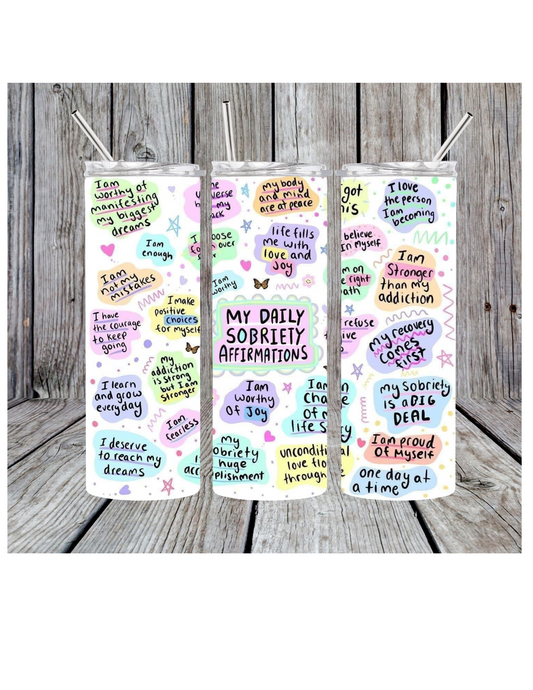 I am
worthy of
manifesting
my biggest
dreams
I am
enough
I am
not my
mistakes
I make
positive
choices
for myself
I have
the courage
to keep
going
my
addiction
is strong
but I am
stronger
I learn
and grow
everyday
I am
fearless
I deserve
to reach my
dreams
verse
my
my body
and mind
are at peace
oose
over
life fills
me with
love and
joy
I am
worthy
MY DAILY
SOBRIETY
AFFIRMATIONS
I am
worthy
of Joy
I am in
charge
of my
life story
my
obriety
huge
plishment
unconditional
love flo
through
got
his
I love
the person
I am
becoming
believe
In myself
I am
Stronger
than my
addiction
m on
e right
ath
refuse
give
my recovery
comes
first
my Sobriety
IS a BIG
DEAL
I am proud
of Myself
one day at
a time